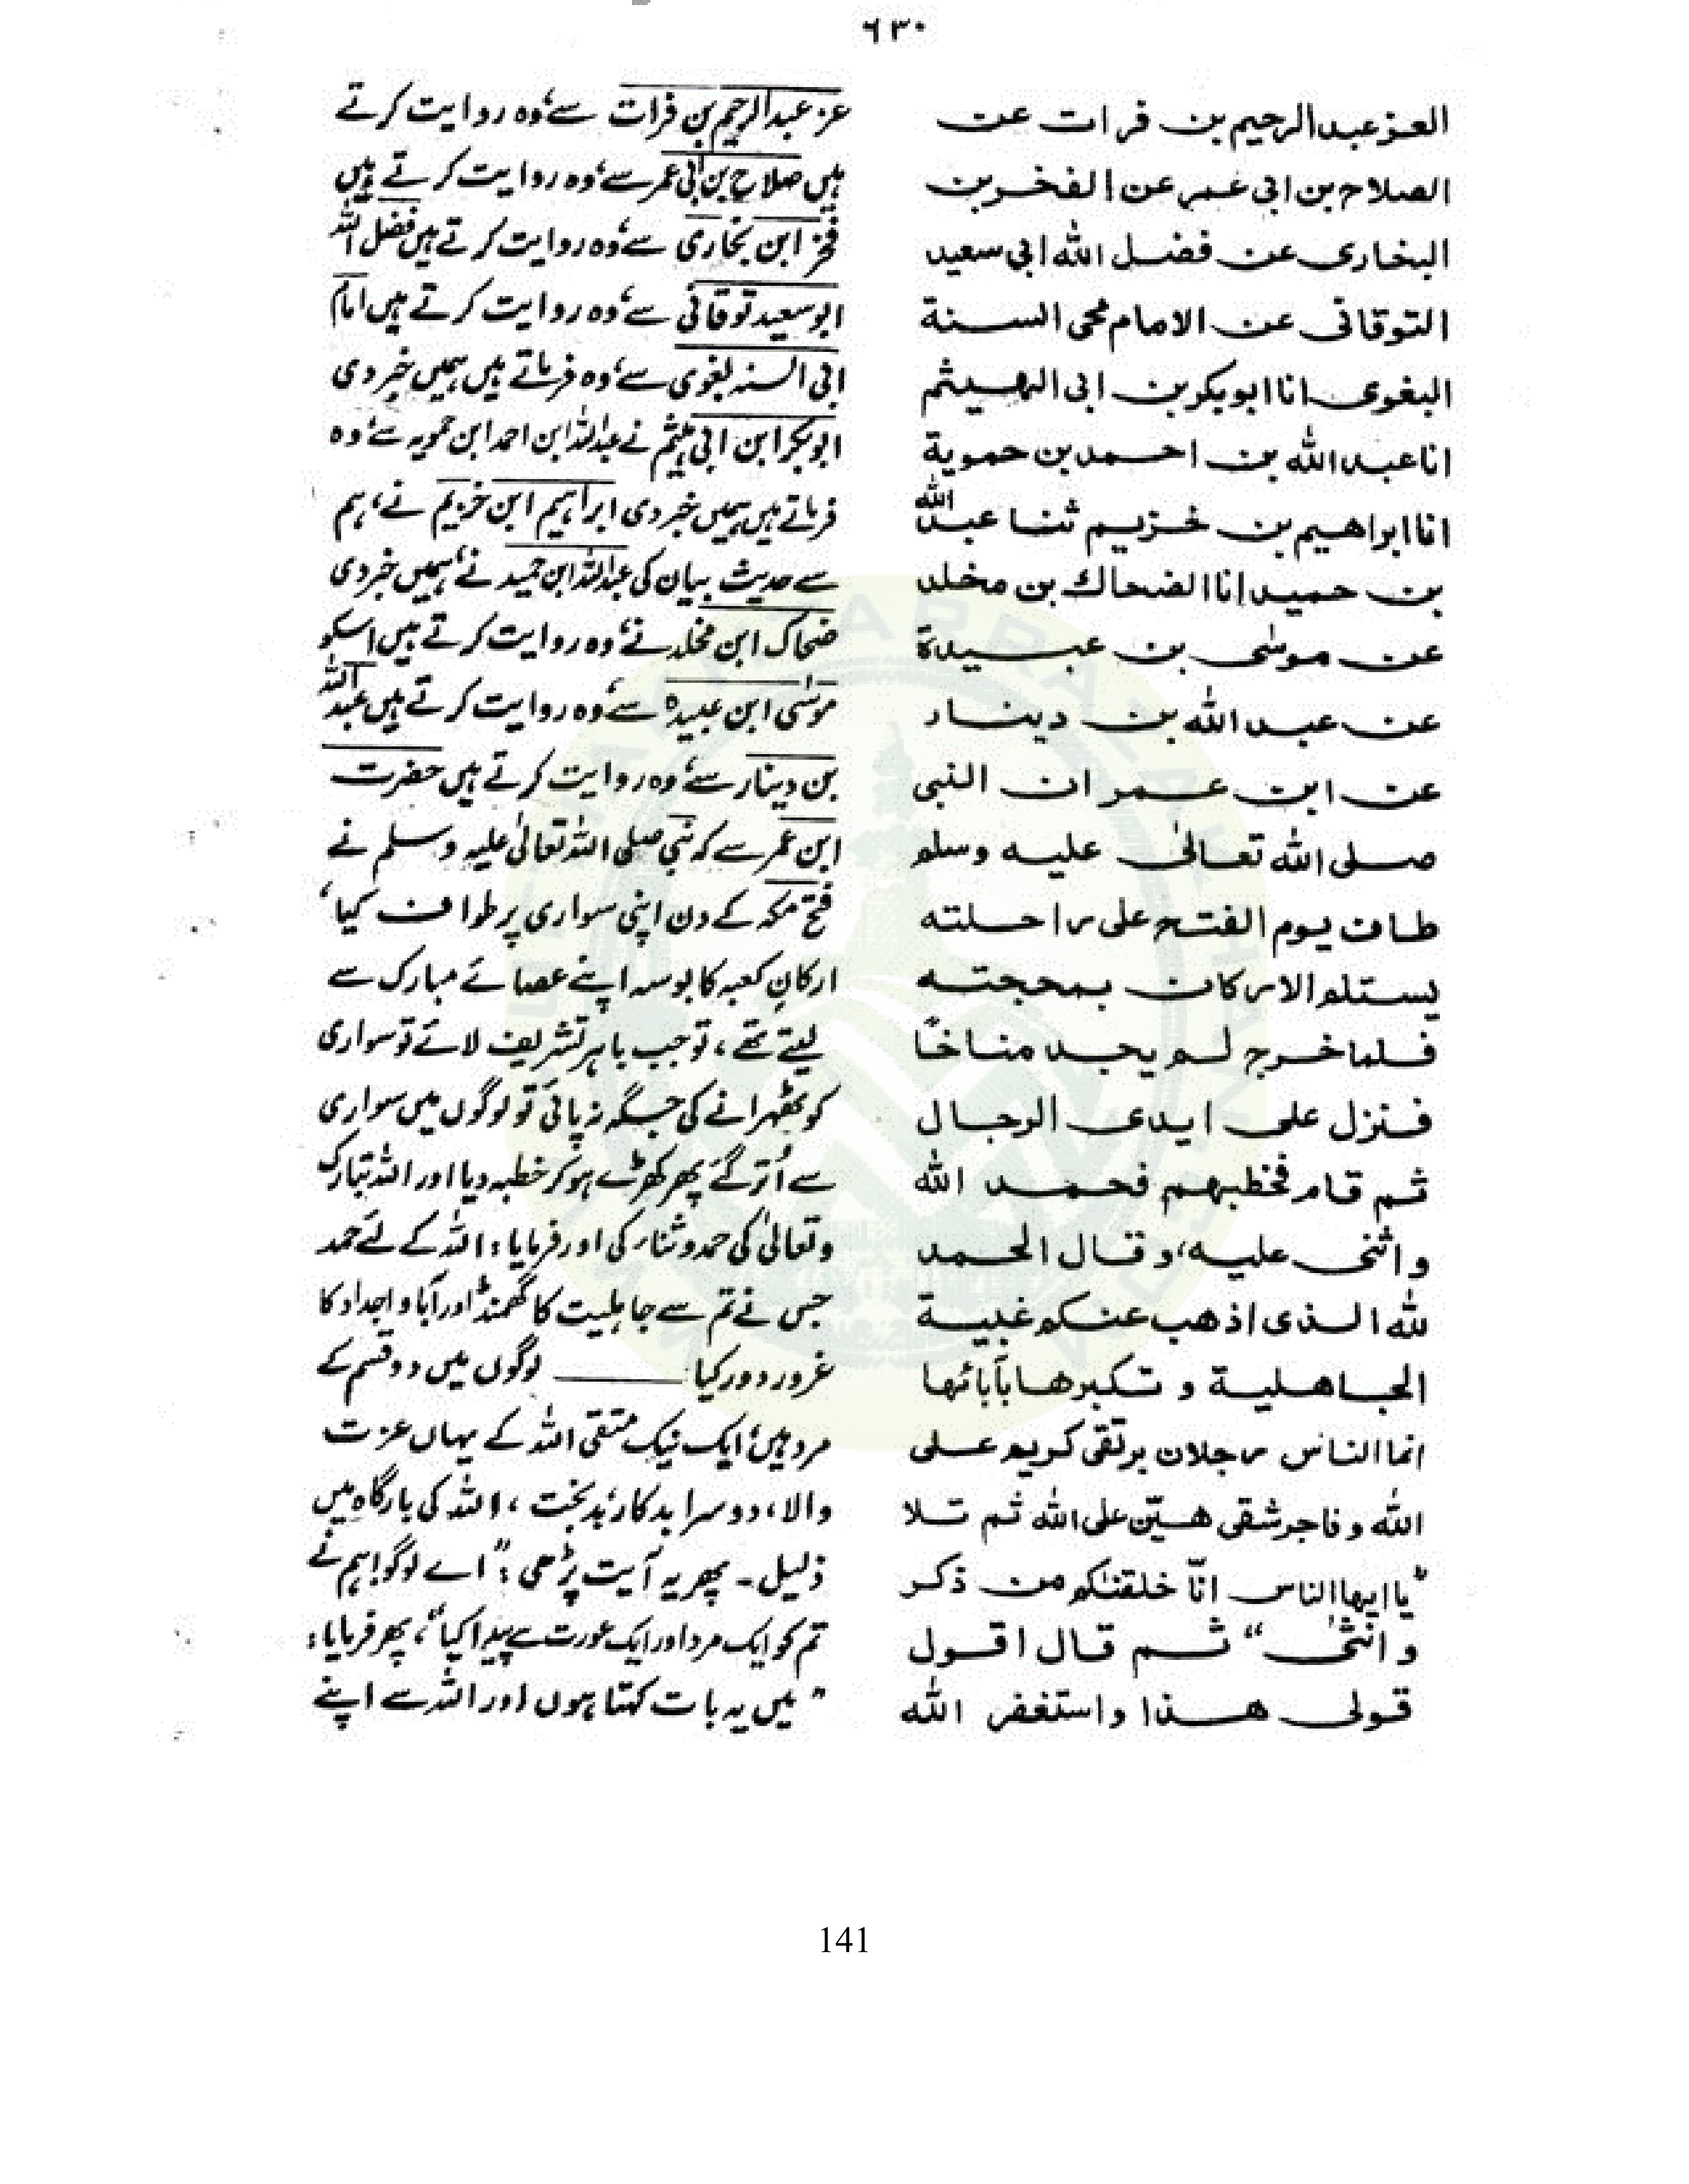 ٦٣٠
العز عبدالرحیم بن فرات عن
الصلاح بن ابی عمر عن الفخر بن
البخاری عن فضل الله ابی سعید
التوقانی عن الامام محی السنة
البغوی انا ابوبکر بن ابی الهیثم
انا عبد الله بن احمد بن حمویة
انا ابراهیم بن خزیم ثنا عبد الله
بن حمید انا الضحاك بن مخلد
عن موسٰی بن عبیدة
عن عبد الله بن دینار
عن ابن عمر ان النبی
صلی الله تعالٰی علیه وسلم
طاف یوم الفتح علی راحلته
یستلم الارکان بمحجته
فلما خرج لم یجد مناخًا
فنزل علی ایدی الرجال
ثم قام فخطبهم فحمد الله
و اثنی علیه، و قال الحمد
لله الذی اذهب عنکم غبیة
الجاهلیة و تکبرها بآبائها
انما الناس رجلان بر تقی کریم علی
الله و فاجر شقی هیّن علی الله ثم تلا
”یا ایها الناس انّا خلقنٰکم من ذکر
و انثٰی“ ثم قال اقول
قولی هذا و استغفر الله
عز عبدالرحیم بن فرات سے، وہ روایت کرتے
ہیں صلاح بن ابی عمر سے، وہ روایت کرتے ہیں
فخر ابن بخاری سے، وہ روایت کرتے ہیں فضل اللہ
ابو سعید توقانی سے، وہ روایت کرتے ہیں امام
ابی السنہ بغوی سے، وہ فرماتے ہیں ہمیں خبر دی
ابوبکر ابن ابی ہیثم نے عبداللہ ابن احمد ابن حمویہ سے، وہ
فرماتے ہیں ہمیں خبر دی ابراہیم ابن خزیم نے، ہم
سے حدیث بیان کی عبداللہ ابن حمید نے، ہمیں خبر دی
ضحاک ابن مخلد نے، وہ روایت کرتے ہیں اسکو
موسٰی ابن عبیدہ سے، وہ روایت کرتے ہیں عبد اللہ
بن دینار سے، وہ روایت کرتے ہیں حضرت
ابن عمر سے کہ نبی صلی اللہ تعالٰی علیہ وسلم نے
فتح مکہ کے دن اپنی سواری پر طواف کیا،
ارکانِ کعبہ کا بوسہ اپنے عصائے مبارک سے
لیتے تھے، تو جب باہر تشریف لائے تو سواری
کو ٹھہرانے کی جگہ نہ پائی تو لوگوں میں سواری
سے اُتر گئے پھر کھڑے ہو کر خطبہ دیا اور اللہ تبارک
و تعالٰی کی حمد و ثنا کی اور فرمایا: اللہ کے لئے حمد
جس نے تم سے جاہلیت کا گھمنڈ اور آبا و اجداد کا
غرور دور کیا ــــــ لوگوں میں دو قسم کے
مرد ہیں، ایک نیک متقی اللہ کے یہاں عزت
والا، دوسرا بدکار، بدبخت، اللہ کی بارگاہ میں
ذلیل۔ پھر یہ آیت پڑھی: ”اے لوگو! ہم نے
تم کو ایک مرد اور ایک عورت سے پیدا کیا“، پھر فرمایا:
”میں یہ بات کہتا ہوں اور اللہ سے اپنے
141